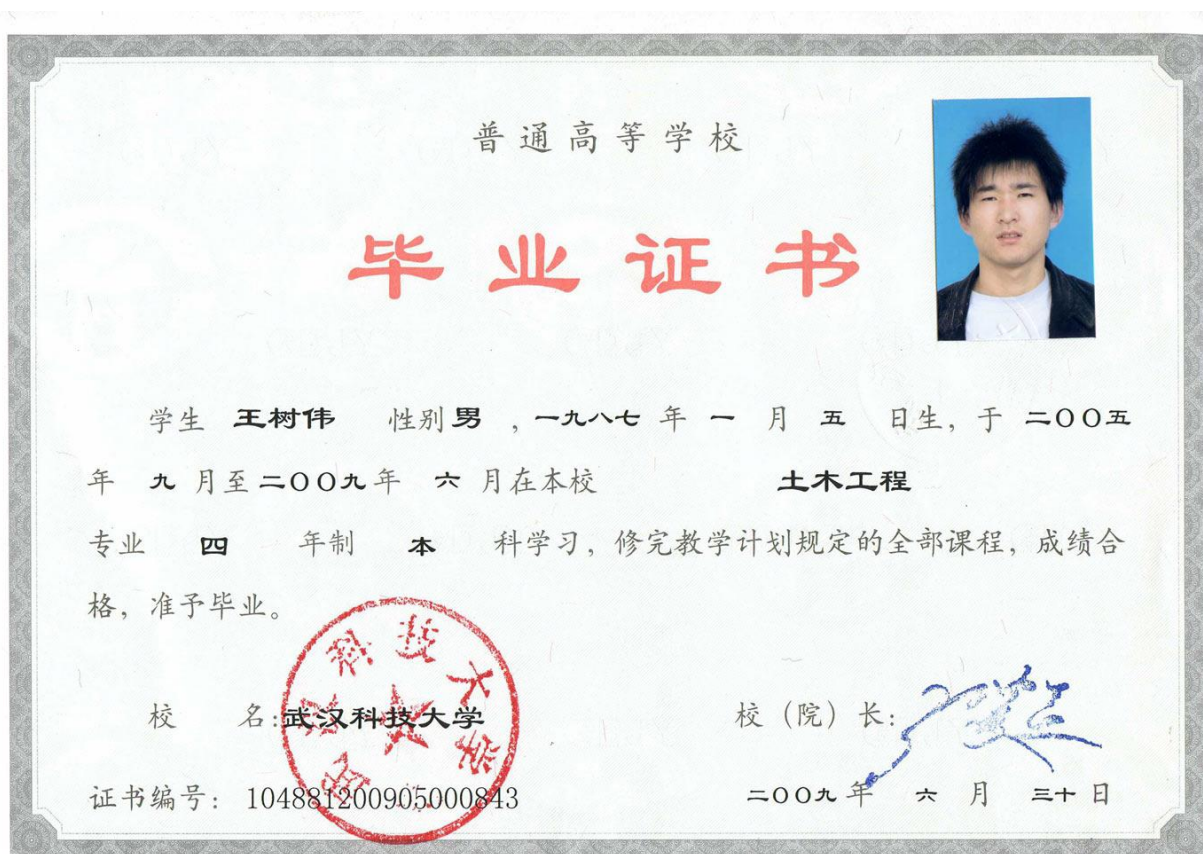 普通高等学校
毕业证书
学生 王树伟 性别 男 , 一九八七 年 一 月 五 日生, 于 二〇〇五
年 九 月至 二〇〇九 年 六 月在本校 土木工程
专业 四 年制 本 科学习, 修完教学计划规定的全部课程, 成绩合
格, 准予毕业。
武汉科技大学
校 名: 武汉科技大学 校 (院) 长:
证书编号: 104881200905000843 二〇〇九 年 六 月 三十 日